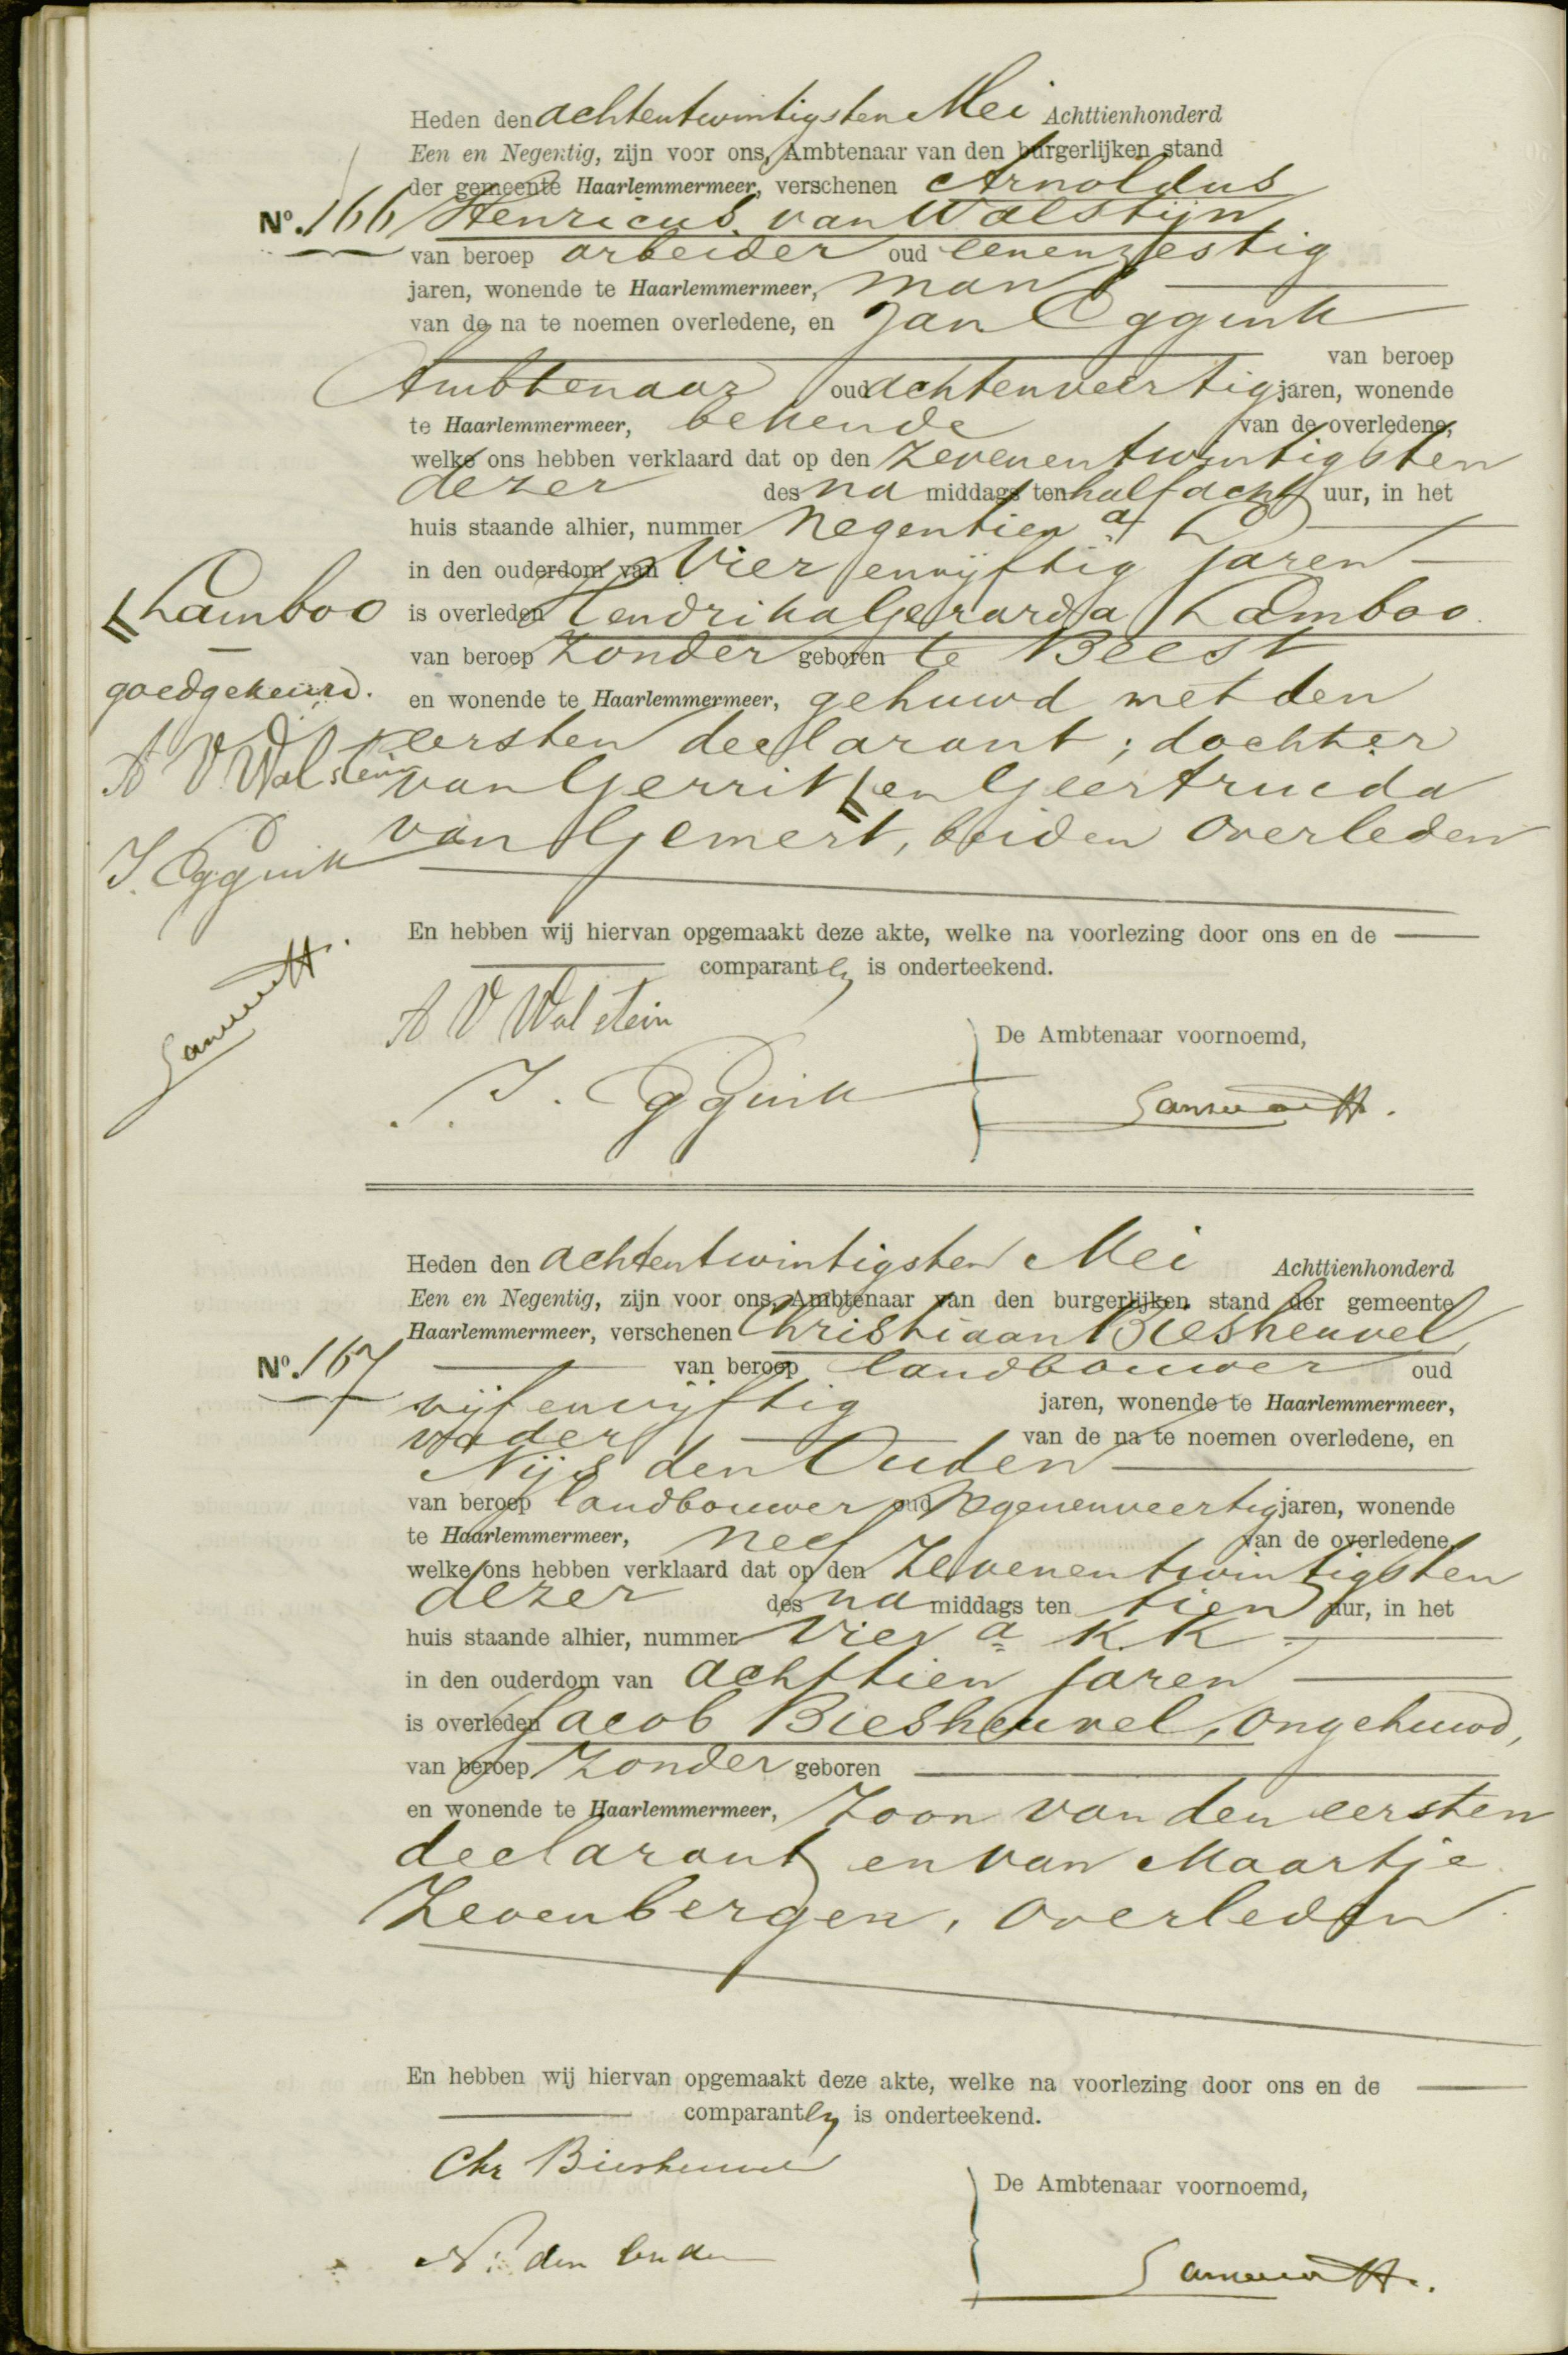 Heden den achtentwintigsten Mei Achttienhonderd
Een en Negentig, zijn voor ons, Ambtenaar van den burgerlijken stand
der gemeente Haarlemmermeer, verschenen Arnoldus
No. 166 Henricus van Walstijn,
van beroep arbeider oud eenenzestig
jaren, wonende te Haarlemmermeer, man
van de na te noemen overledene, en Jan Eggink
van beroep
Ambtenaar oud achtenveertig jaren, wonende
te Haarlemmermeer, bekende van de overledene,
welke ons hebben verklaard dat op den zevenentwintigsten
dezer des na middags ten half acht uur, in het
huis staande alhier, nummer negentien a
in den ouderdom van Vierenvijftig jaren
is overleden Hendrika Gerarda Lamboo
van beroep zonder geboren te Beest
en wonende te Haarlemmermeer, gehuwd met den
eersten declarant; dochter
van Gerrit // en Geertruida
van Gemert, beiden overleden
// Lamboo
goedgekeurd.
A V Walstein
J. Eggink
En hebben wij hiervan opgemaakt deze akte, welke na voorlezing door ons en de
comparanten is onderteekend.
A V Walstein
De Ambtenaar voornoemd,
J. Eggink
Heden den achtentwintigsten Mei Achttienhonderd
Een en Negentig, zijn voor ons, Ambtenaar van den burgerlijken stand der gemeente
Haarlemmermeer, verschenen Christiaan Biesheuvel,
No. 167 van beroep landbouwer oud
vijfenvijftig jaren, wonende te Haarlemmermeer,
vader van de na te noemen overledene, en
Nijs den Ouden
van beroep landbouwer oud negenenveertig jaren, wonende
te Haarlemmermeer, neef van de overledene,
welke ons hebben verklaard dat op den zevenentwintigsten
dezer des na middags ten tien uur, in het
huis staande alhier, nummer Vier a K.K
in den ouderdom van achttien jaren
is overleden Jacob Biesheuvel, ongehuwd,
van beroep zonder geboren
en wonende te Haarlemmermeer, zoon van den eersten
declarant en van Maartje
Zevenbergen, overleden
En hebben wij hiervan opgemaakt deze akte, welke na voorlezing door ons en de
comparanten is onderteekend.
Chr Biesheuvel
De Ambtenaar voornoemd,
N. den Ouden